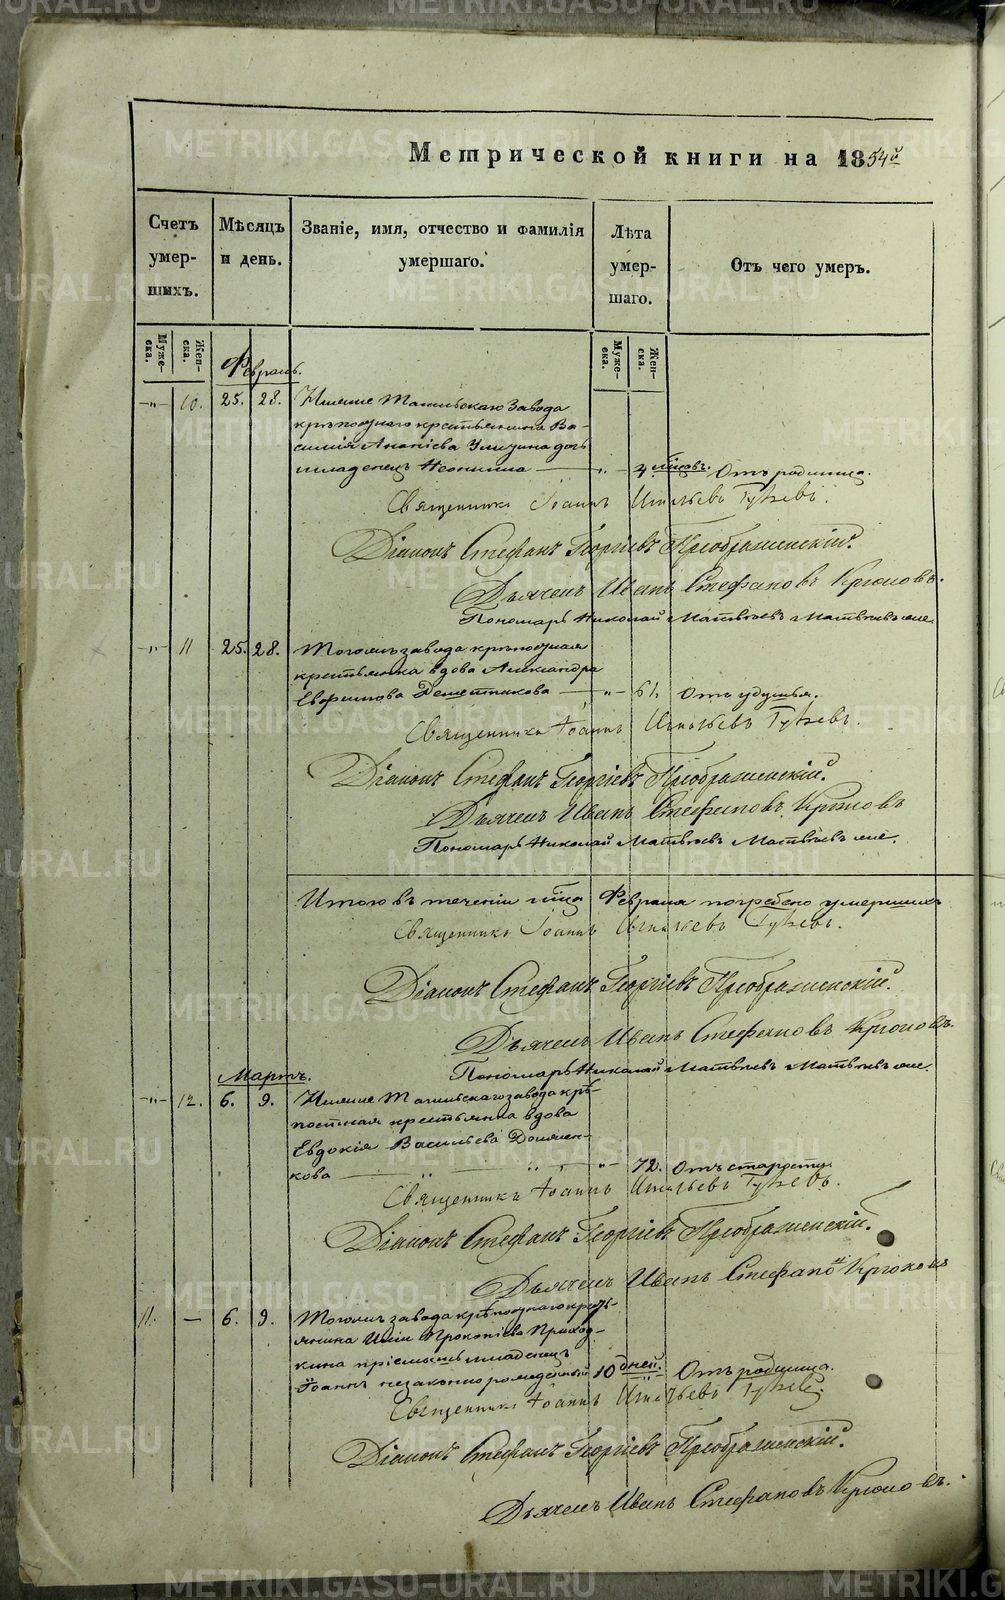 Метрической книги на 1854й
Счетъ умер-шихъ.
Мѣсяцъ и день.
Званіе, имя, отчество и фамилія умершаго.
Лѣта умер-шаго.
Отъ чего умеръ.
Муже-ска.
Жен-ска.
Муже-ска.
Жен-ска.
Февраль.
-"- 10. 25. 28. Нижне Тагильскаго Завода
крѣпостнаго крестьянина Ва-
силія Ананіева дочь
младенецъ Неонилла — -"- 4 мѣсяцовъ. Отъ родимца.
Священникъ Іоаннъ Игнатьевъ
Діаконъ Стефанъ Георгіевъ Преображенскій.
Дьячекъ Иванъ Стефановъ Крюковъ.
Пономарь Николай Матвѣевъ Матвѣевъ же.
-"- 11 25. 28. Тогожъ завода крѣпостная
крестьянка вдова Александра
— -"- 61. Отъ удушья.
Священникъ Іоаннъ Игнатьевъ
Діаконъ Стефанъ Георгіевъ Преображенскій.
Дьячекъ Иванъ Стефановъ Крюковъ
Пономарь Николай Матвѣевъ Матвѣевъ же.
Итого въ теченіи мѣсяца Февраля погребено умершихъ
Священникъ Іоаннъ Игнатьевъ
Діаконъ Стефанъ Георгіевъ Преображенскій.
Дьячекъ Иванъ Стефановъ Крюковъ.
Пономарь Николай Матвѣевъ Матвѣевъ же.
Мартъ.
-"- 12. 6. 9. Нижне Тагильскаго завода крѣ-
постная крестьянка вдова
Евдокія Васильева
кова — -"- 72. Отъ старости.
Священникъ Іоаннъ Игнатьевъ
Діаконъ Стефанъ Георгіевъ Преображенскій.
Дьячекъ Иванъ Стефановъ Крюковъ
11. — 6. 9. Тогожъ завода крѣпостнаго кресть-
янина Прокопіева Приход-
кина пріемышъ младенецъ
Іоаннъ незаконнорожденный 10 дней. Отъ родимца.
Священникъ Іоаннъ Игнатьевъ
Діаконъ Стефанъ Георгіевъ Преображенскій.
Дьячекъ Иванъ Стефановъ Крюковъ.
METRIKI.GASO-URAL.RU